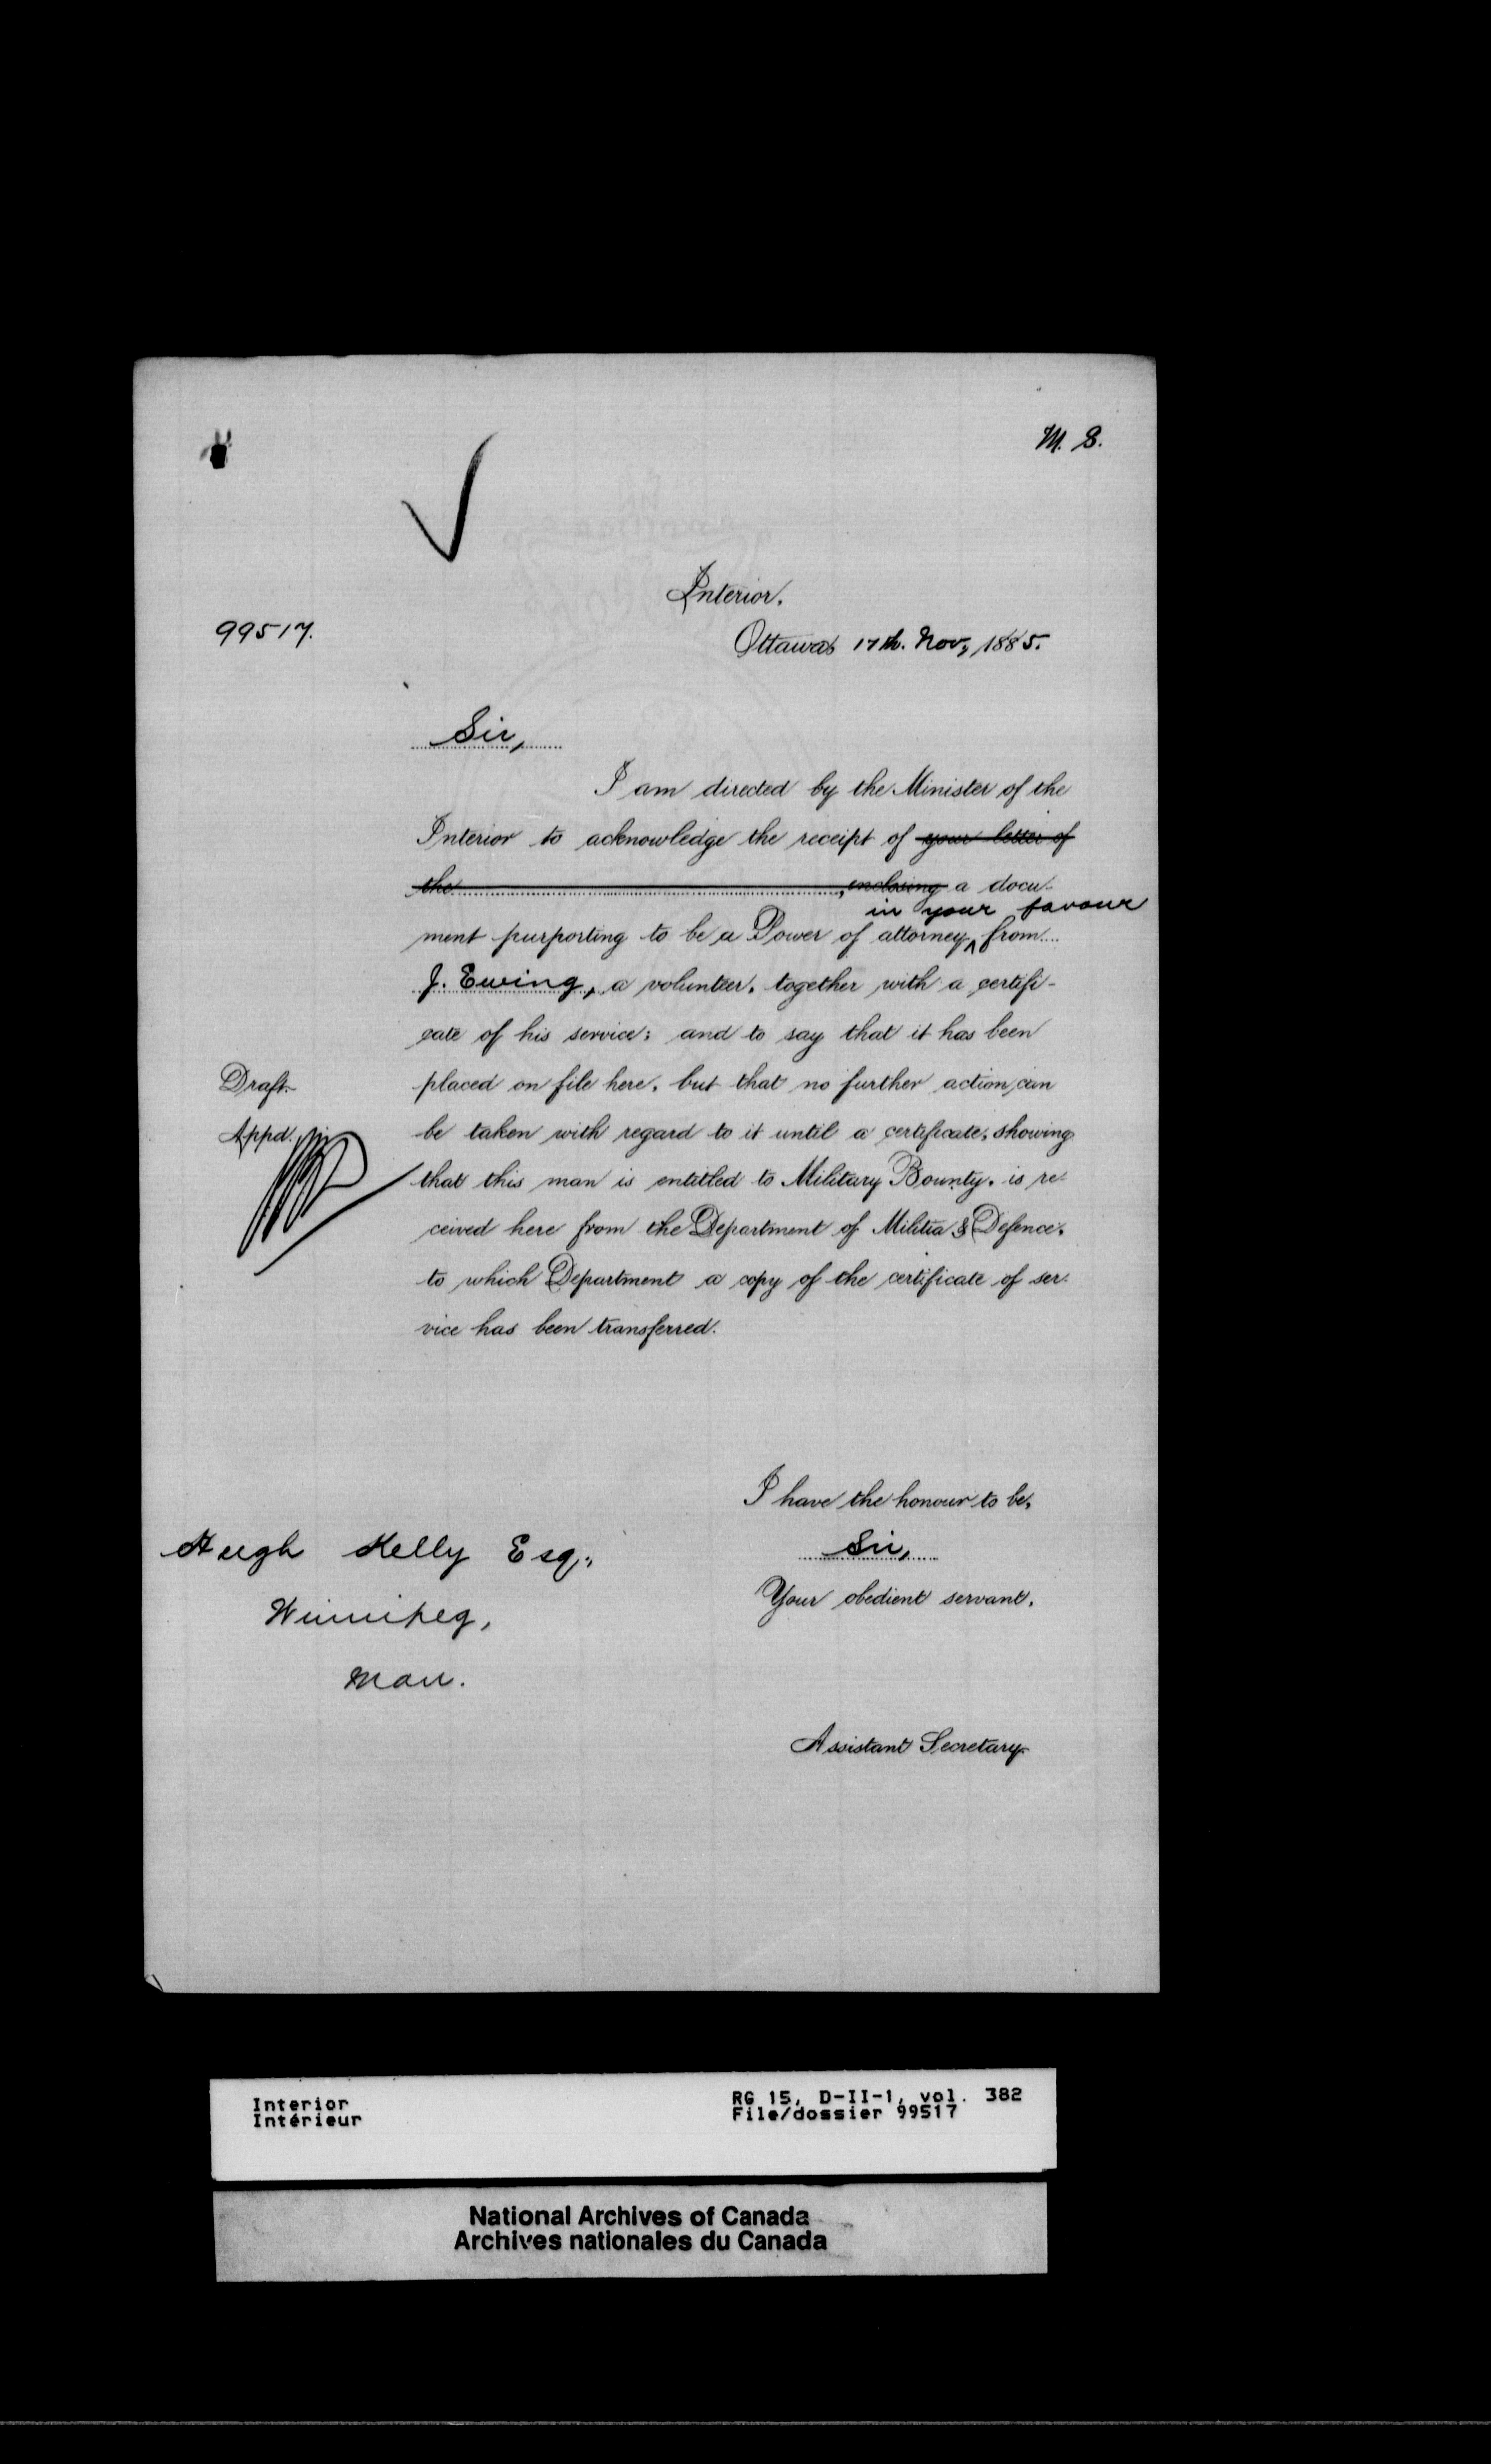 M. S.
Interior.
99517.
Ottawa 17th. Nov, 1885.
Sir,
I am directed by the Minister of the
Interior to acknowledge the receipt of your letter of
the , enclosing a docu-
in your favour
ment purporting to be a Power of attorney from
J. Ewing, a volunteer, together with a certifi-
cate of his service; and to say that it has been
Draft. placed on file here, but that no further action can
Appd. be taken with regard to it until a certificate, showing
that this man is entitled to Military Bounty, is re-
ceived here from the Department of Militia & Defence,
to which Department a copy of the certificate of ser-
vice has been transferred.
I have the honour to be,
Sir,
Your obedient servant,
Hugh Kelly Esq.,
Winnipeg,
Man.
Assistant Secretary
Interior
Intérieur
RG 15, D-II-1, vol. 382
File/dossier 99517
National Archives of Canada
Archives nationales du Canada